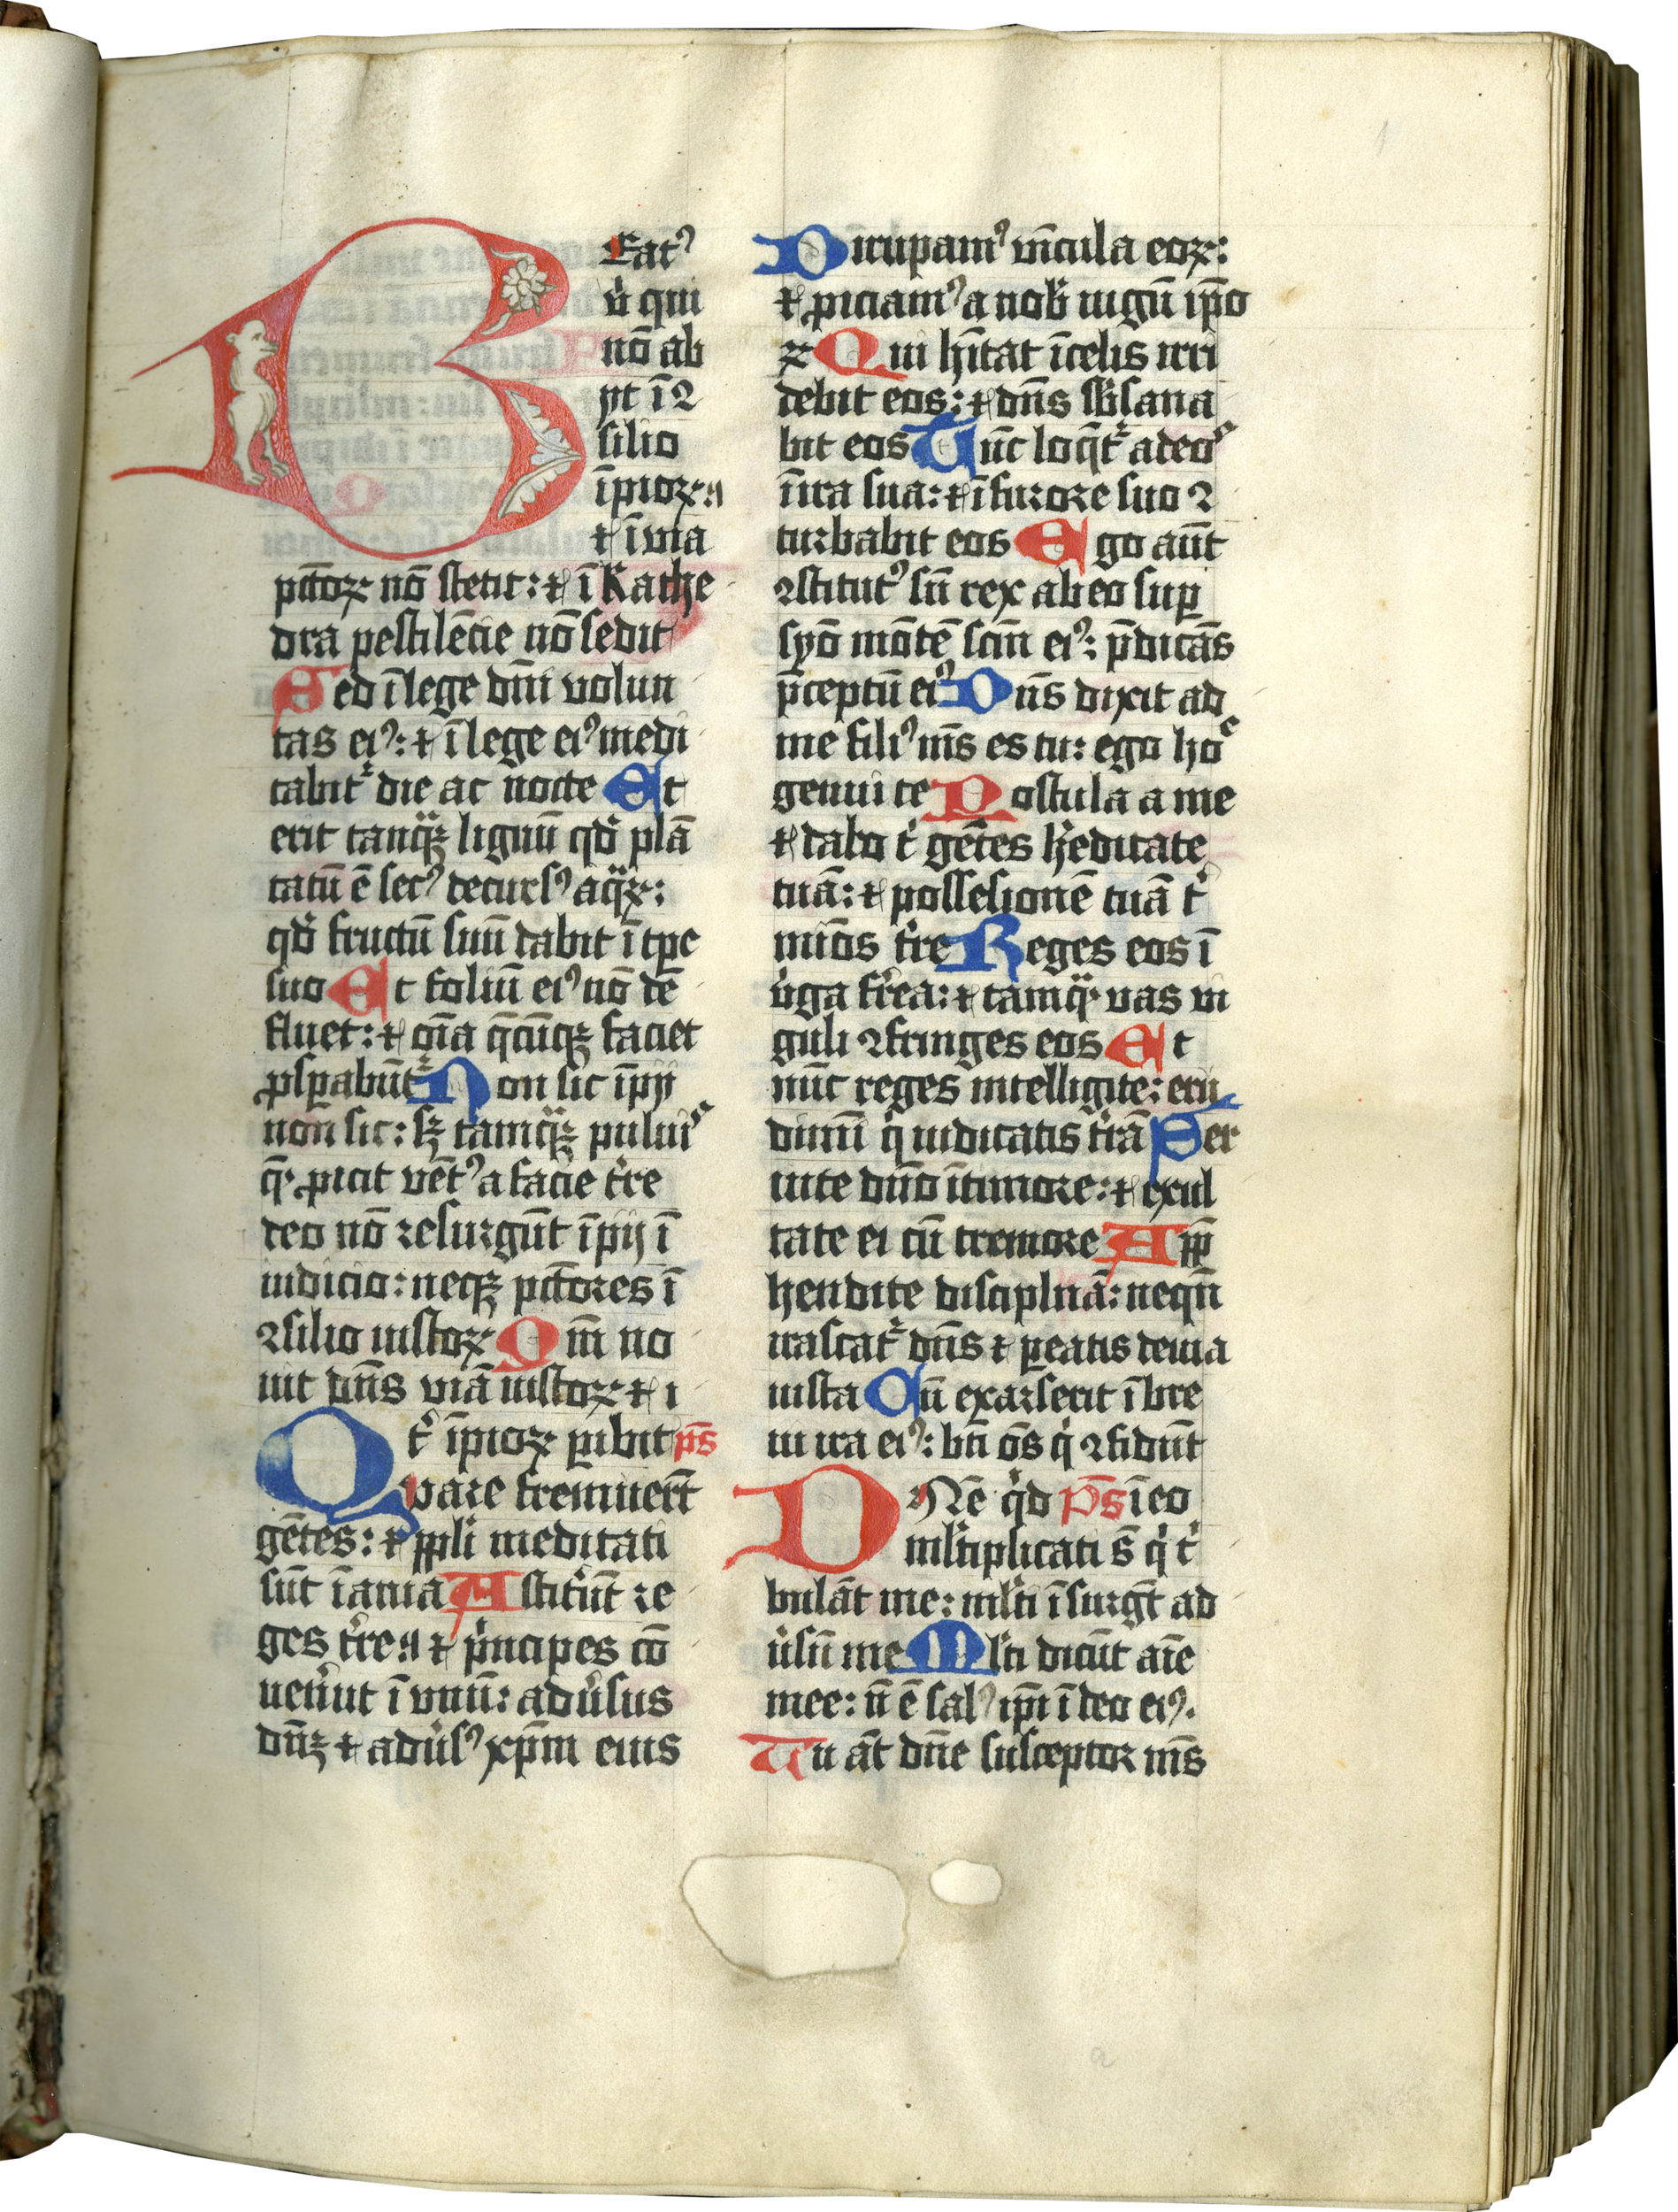 BEatꝰ
v̓ qui
nō ab
ijt ī ꝯ
silio
īpioꝝ ⁊
⁊ ī via
pctōꝝ nō stetit: ⁊ ī kathe
dra pestilēcie nō sedit
Sed ī lege dn̄i volun
tas eiꝰ: ⁊ ī lege eiꝰ medi
tabit᷑ die ac nocte Et
erit tanqͣꝫ lignū qd̓ plā
tatū ē secꝰ decursꝰ aqͣꝝ:
qd̓ fructū suū dabit ī tꝑe
suo Et foliū eiꝰ nō de
fluet: ⁊ oīa q̄cūqꝫ faciet
ꝓsꝑabūt᷑ Non sic īpij
non sic: sꝫ tamqͣꝫ puluiˢ
q̄ ꝓicit vētꝰ a facie tr̓e
Ideo nō resurgūt īpij ī
iudicio: neqꝫ pctōres ī
ꝯsilio iustoꝝ Qm̄ no
uit dn̄s viā iustoꝝ ⁊ i
t̓ īpioꝝ ꝑibit ps̄
Quare fremuerūt
gētes: ⁊ ppl̓i meditati
sūt īania Astit̓ūt re
ges tr̓e ⁊ p̓ncipes cō
uen̓ut ī vnū: adu̓sus
dn̄ꝫ ⁊ adu̓sꝰ xp̄m eius
Dirupamꝰ vīcula eoꝝ:
⁊ ꝓiciamꝰ a nob̓ iugū ip̄o
ꝝ Qui hītat ī celis irri
debit eos: ⁊ dn̄s sb̓sana
bit eos Tūc loq̄t᷑ ad eoˢ
ī ira sua: ⁊ ī furore suo ꝯ
turbabit eos Ego aūt
ꝯstitutꝰ sū rex ab eo suꝑ
syō mōtē scm̄ eiꝰ: p̄dicās
p̄ceptū eiꝰ Dn̄s dixit ad
me filiꝰ mīs es tu: ego hoͨ
genui te Postula a me
⁊ dabo t̓ gētes h̓editatē
tuā: ⁊ possesionē tuā t̓
mīos tr̓e Reges eos ī
v̓ga fr̓ea: ⁊ tamqͣ vas fi
guli ꝯfringes eos Et
nūc reges intelligite: eru
dimī q̓ iudicatis tr̓ā Ser
uite dn̄o ī timore: ⁊ exul
tate ei cū tremore App̄
hendite disciplinā: neqn̄
irascat᷑ dn̄s ⁊ ꝑeatis de uia
iusta Cū exarserit ī bre
ui ira eiꝰ: bt̄i oēs q̓ ꝯfidūt
DNē q̓d ps̄ ī eo
ml̓tiplicati s̄ q̓ t̓
bulāt me: ml̓ti ī surgūt ad
u̓sū me Ml̓ti dicūt aīe
mee: nō ē salꝰ ip̄i ī deo eiꝰ.
Tu āt dn̄e susceptor mīs